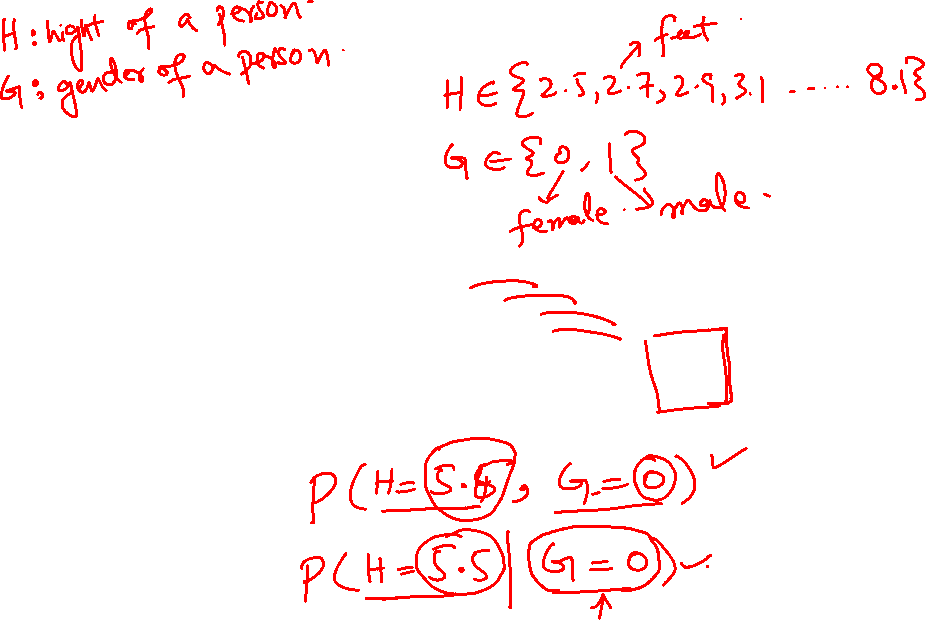 H : hight of a person.
G : gender of a person.
feet
H ∈ {2.5, 2.7, 2.9, 3.1 ........ 8.1}
G ∈ {0, 1}
female. male.
P(H=5. , G=0) ✓
P(H=5.5 | G=0) ✓